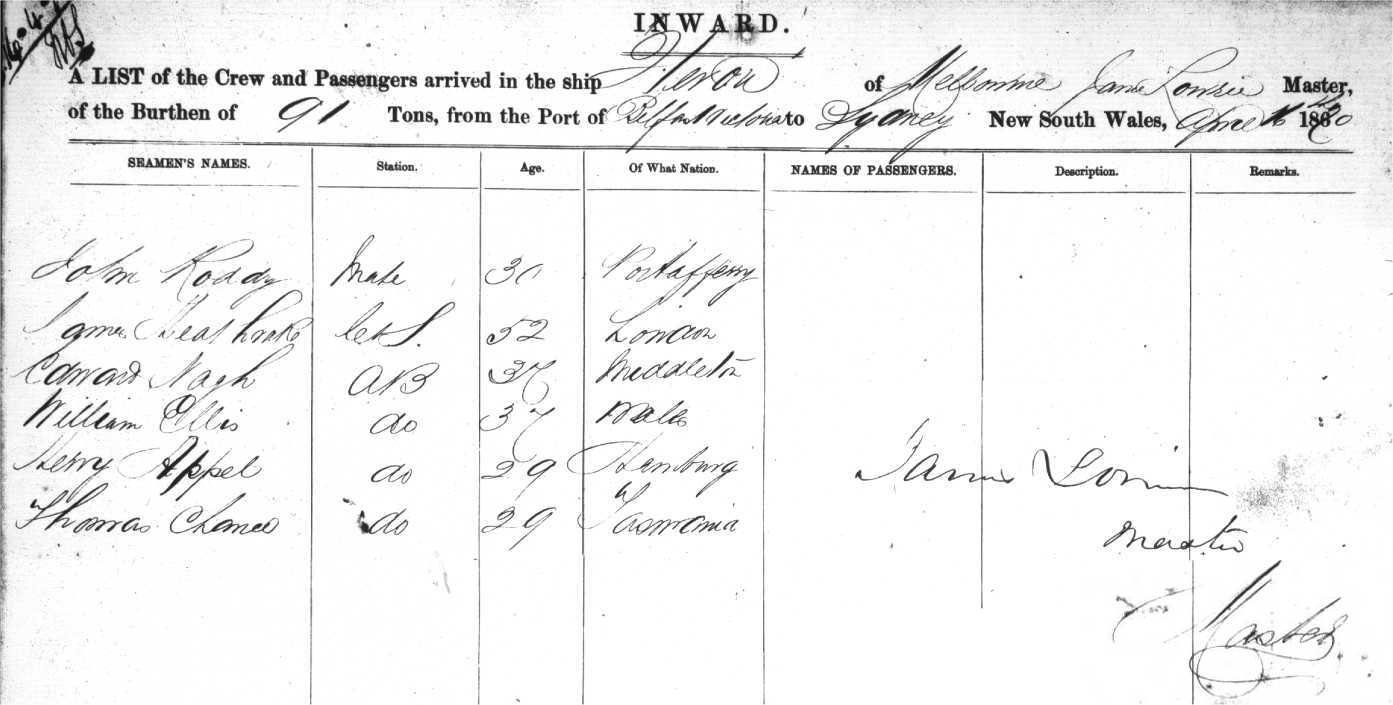 INWARD.
A LIST of the Crew and Passengers arrived in the ship Heron of Melbourne Master,
of the Burthen of 91 Tons, from the Port of Belfast Victoria to Sydney New South Wales, 186
SEAMEN'S NAMES. Station. Age. Of What Nation. NAMES OF PASSENGERS. Description. Remarks.
John Roddy Mate 30 Portaferry
James C & S. 52 London
Edward Nagh AB 37 Middleton
William Ellis do 37 Wales
Henry Appel do 29 Hamburg
James
Thomas Chance do 29 Tasmania
Master
Master